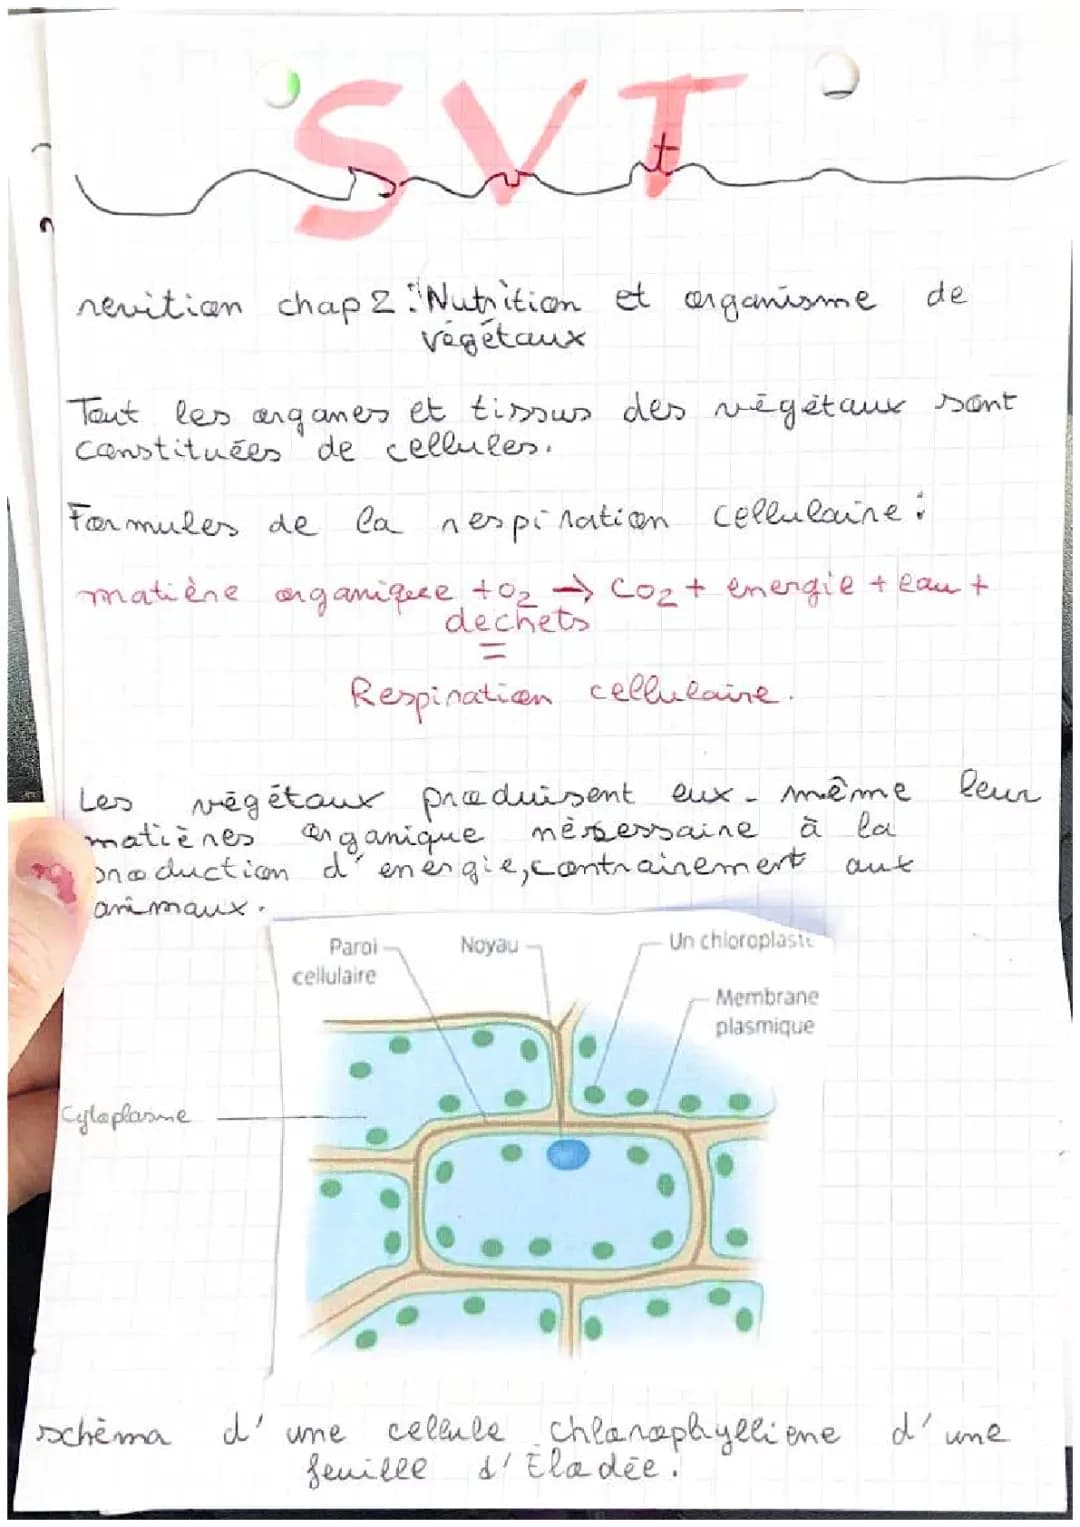 SVT
revition chap 2 : "Nutrition et organisme de
végétaux
Tout les organes et tissus des végétaux sont
constituées de cellules.
Formules de la respiration cellulaire :
matière organique + O2 → CO2 + energie + eau +
dechets
=
Respiration cellulaire.
Les végétaux produisent eux-même leur
matières organique nécessaire à la
production d'énergie, contrairement aux
animaux.
Paroi Noyau Un chloroplaste
cellulaire
Membrane
plasmique
Cytoplasme
schéma d'une cellule chlorophylliene d'une
feuille d'Élodée.